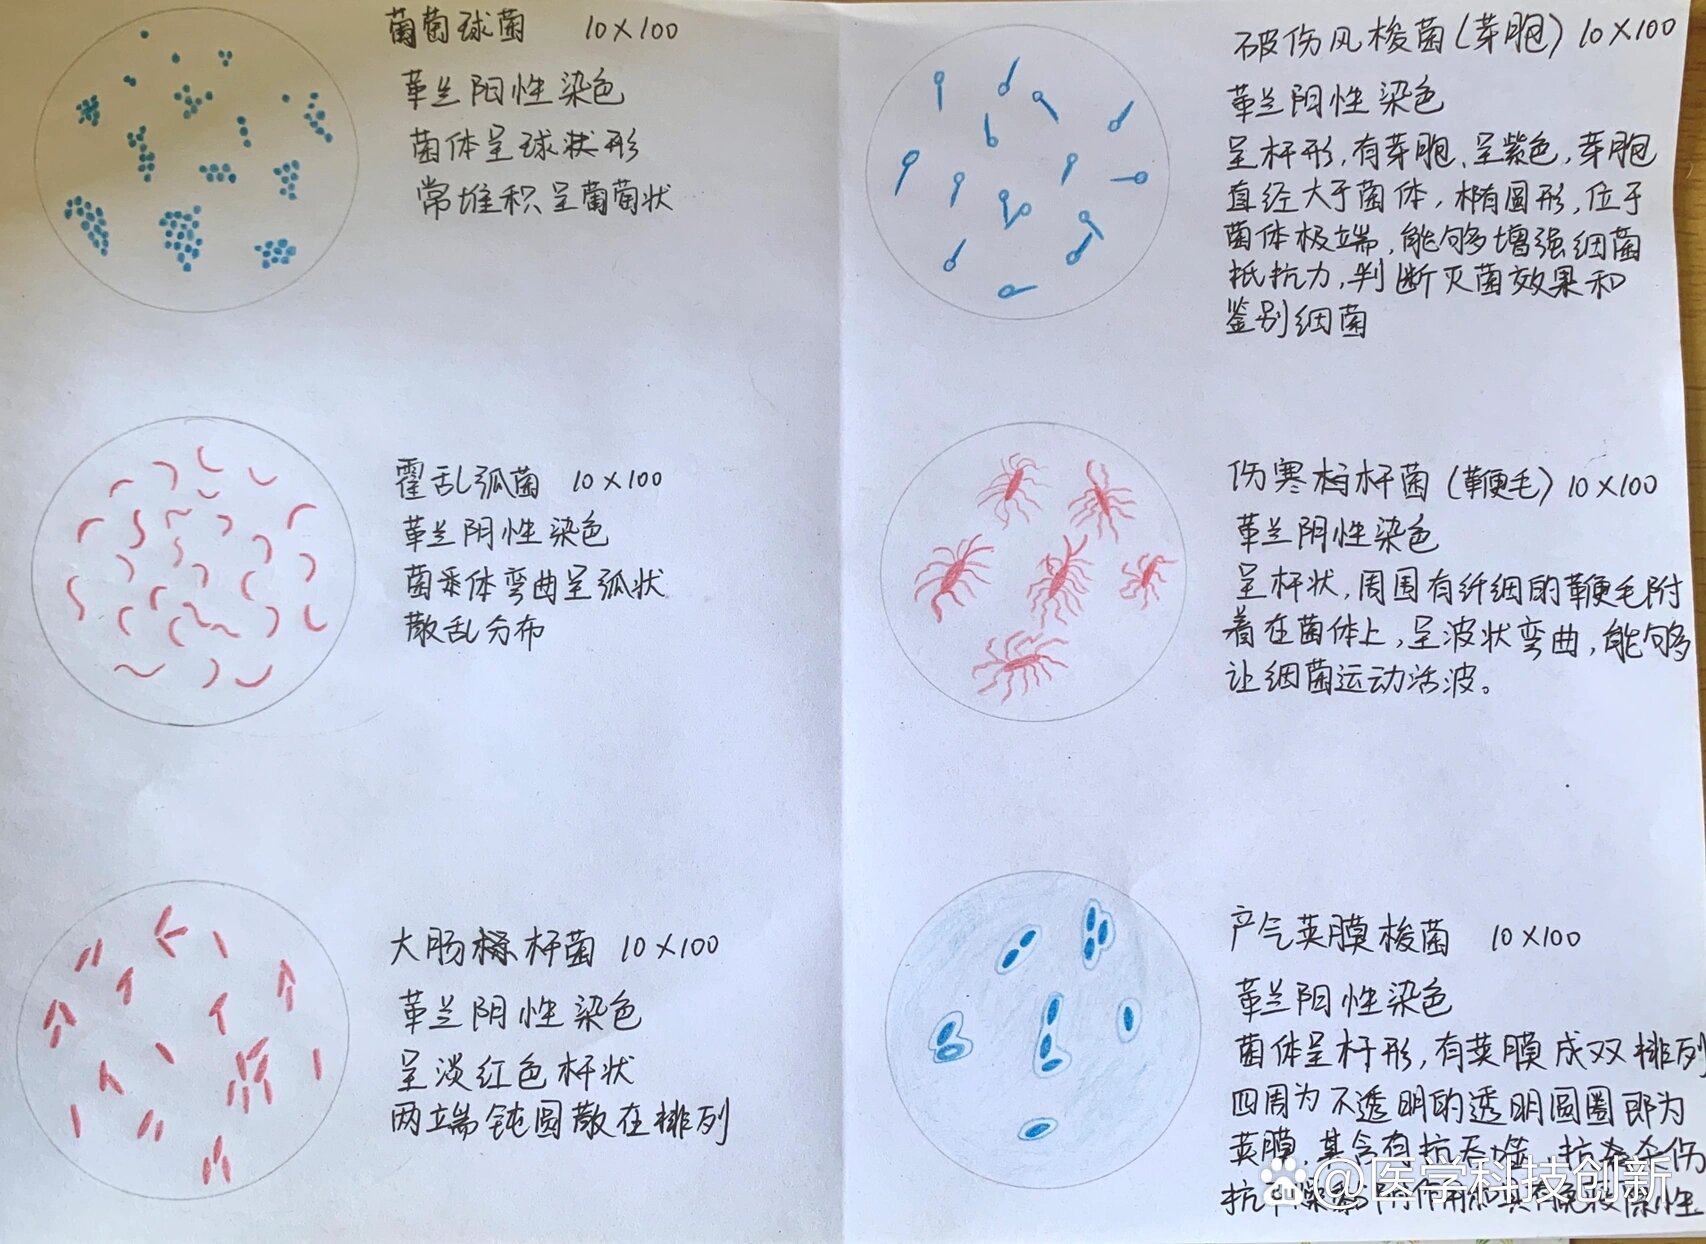 葡萄球菌 10×100
革兰阳性染色
菌体呈球状形
常堆积呈葡萄状
破伤风梭菌(芽胞) 10×100
革兰阳性染色
呈杆形,有芽胞、呈紫色,芽胞
直经大于菌体,椭圆形,位于
菌体极端,能够增强细菌
抵抗力,判断灭菌效果和
鉴别细菌
霍乱弧菌 10×100
革兰阴性染色
菌体弯曲呈弧状
散乱分布
伤寒杆菌(鞭毛) 10×100
革兰阴性染色
呈杆状,周围有纤细的鞭毛附
着在菌体上,呈波状弯曲,能够
让细菌运动活波。
大肠杆菌 10×100
革兰阴性染色
呈淡红色杆状
两端钝圆散在排列
产气荚膜梭菌 10×100
革兰阳性染色
菌体呈杆形,有荚膜成双排列
四周为不透明的透明圆圈即为
荚膜,其含有抗吞噬、抗杀伤
@医学科技创新